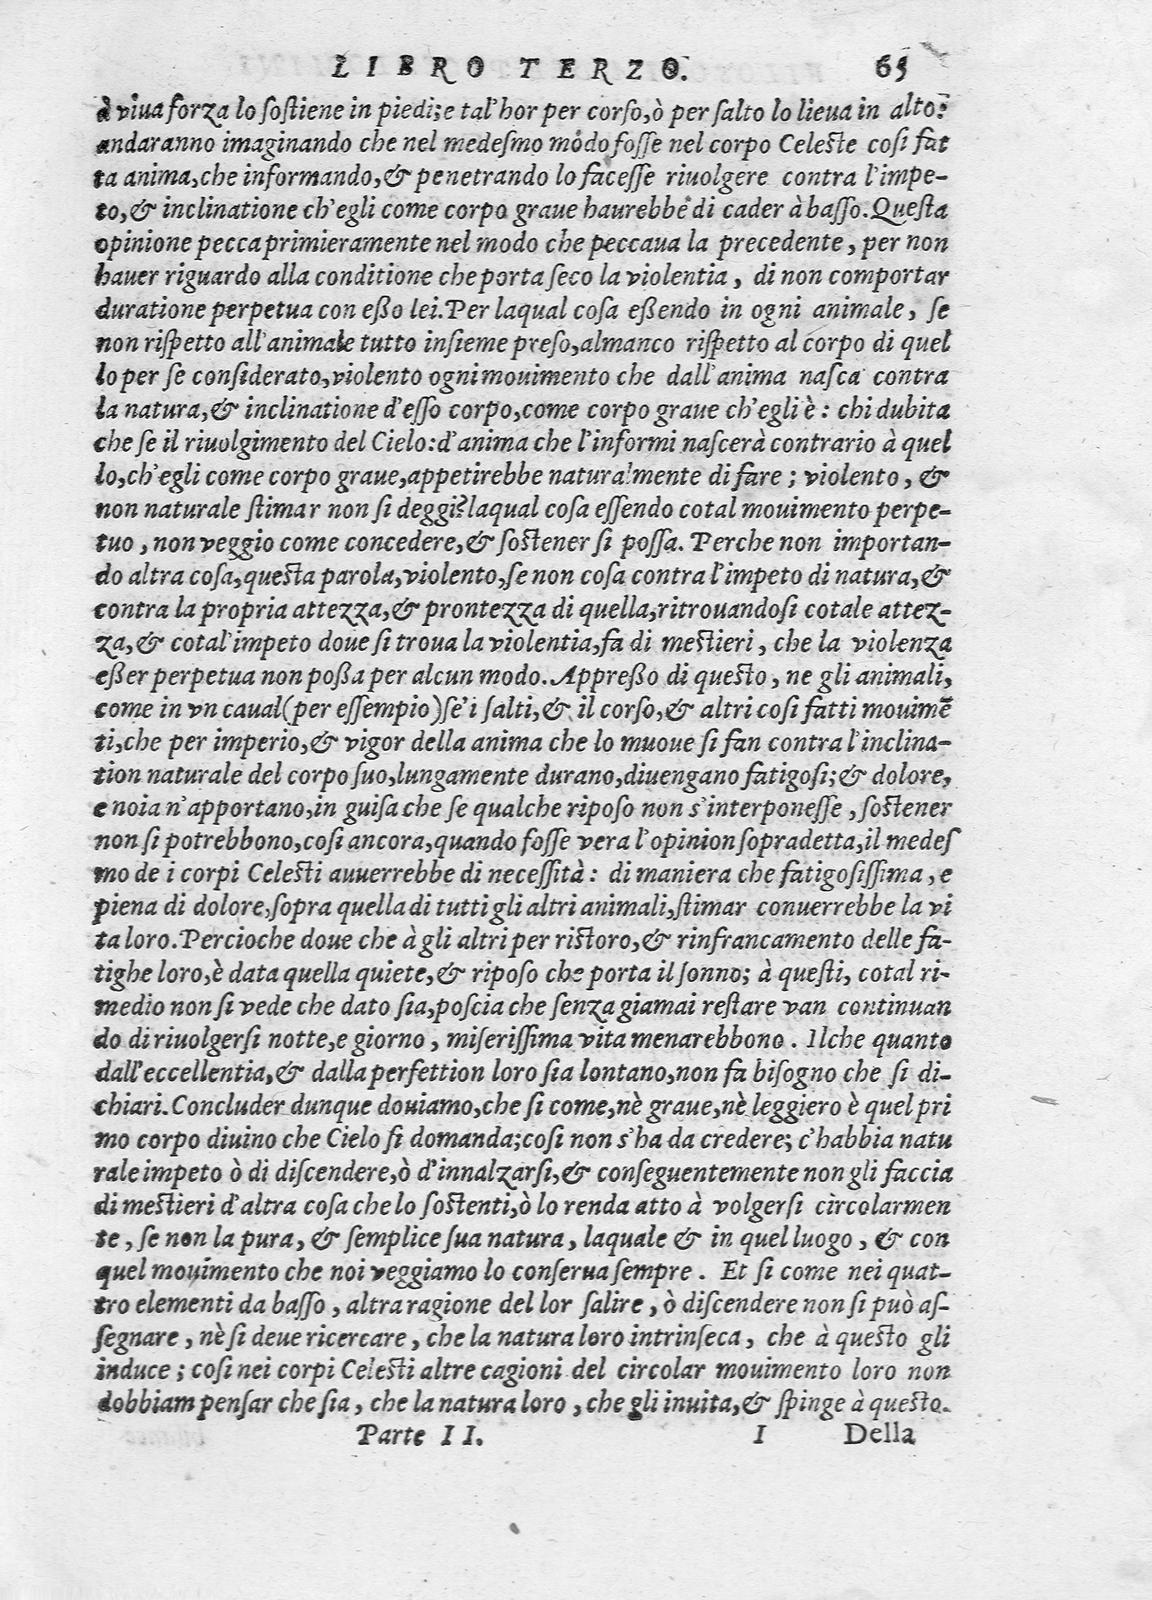 LIBRO TERZO. 65
à viua forza lo sostiene in piedi; e tal'hor per corso, ò per salto lo lieua in alto:
andaranno imaginando che nel medesmo modo fosse nel corpo Celeste cosi fat
ta anima, che informando, & penetrando lo facesse riuolgere contra l'impe-
to, & inclinatione ch'egli come corpo graue haurebbe di cader à basso. Questa
opinione pecca primieramente nel modo che peccaua la precedente, per non
hauer riguardo alla conditione che porta seco la violentia, di non comportar
duratione perpetua con esso lei. Per laqual cosa essendo in ogni animale, se
non rispetto all'animale tutto insieme preso, almanco rispetto al corpo di quel
lo per se considerato, violento ogni mouimento che dall'anima nasca contra
la natura, & inclinatione d'esso corpo, come corpo graue ch'egli è: chi dubita
che se il riuolgimento del Cielo: d'anima che l'informi nascerà contrario à quel
lo, ch'egli come corpo graue, appetirebbe naturalmente di fare; violento, &
non naturale stimar non si deggi? laqual cosa essendo cotal mouimento perpe-
tuo, non veggio come concedere, & sostener si possa. Perche non importan-
do altra cosa, questa parola, violento, se non cosa contra l'impeto di natura, &
contra la propria attezza, & prontezza di quella, ritrouandosi cotale attez-
za, & cotal'impeto doue si troua la violentia, fa di mestieri, che la violenza
esser perpetua non possa per alcun modo. Appresso di questo, ne gli animali,
come in vn caual (per essempio) se'i salti, & il corso, & altri cosi fatti mouimē
ti, che per imperio, & vigor della anima che lo muoue si fan contra l'inclina-
tion naturale del corpo suo, lungamente durano, diuengano fatigosi; & dolore,
e noia n'apportano, in guisa che se qualche riposo non s'interponesse, sostener
non si potrebbono, cosi ancora, quando fosse vera l'opinion sopradetta, il medes
mo de i corpi Celesti auuerrebbe di necessità: di maniera che fatigosissima, e
piena di dolore, sopra quella di tutti gli altri animali, stimar conuerrebbe la vi
ta loro. Percioche doue che à gli altri per ristoro, & rinfrancamento delle fa-
tighe loro, è data quella quiete, & riposo che porta il sonno; à questi, cotal ri-
medio non si vede che dato sia, poscia che senza giamai restare van continuan
do di riuolgersi notte, e giorno, miserissima vita menarebbono. Ilche quanto
dall'eccellentia, & dalla perfettion loro sia lontano, non fa bisogno che si di-
chiari. Concluder dunque douiamo, che si come, nè graue, nè leggiero è quel pri
mo corpo diuino che Cielo si domanda; cosi non s'ha da credere; c'habbia natu
rale impeto ò di discendere, ò d'innalzarsi, & conseguentemente non gli faccia
di mestieri d'altra cosa che lo sostenti, ò lo renda atto à volgersi circolarmen
te, se non la pura, & semplice sua natura, laquale & in quel luogo, & con
quel mouimento che noi veggiamo lo conserua sempre. Et si come nei quat-
tro elementi da basso, altra ragione del lor salire, ò discendere non si può as-
segnare, nè si deue ricercare, che la natura loro intrinseca, che à questo gli
induce; cosi nei corpi Celesti altre cagioni del circolar mouimento loro non
dobbiam pensar che sia, che la natura loro, che gli inuita, & spinge à questo.
Parte II. I Della